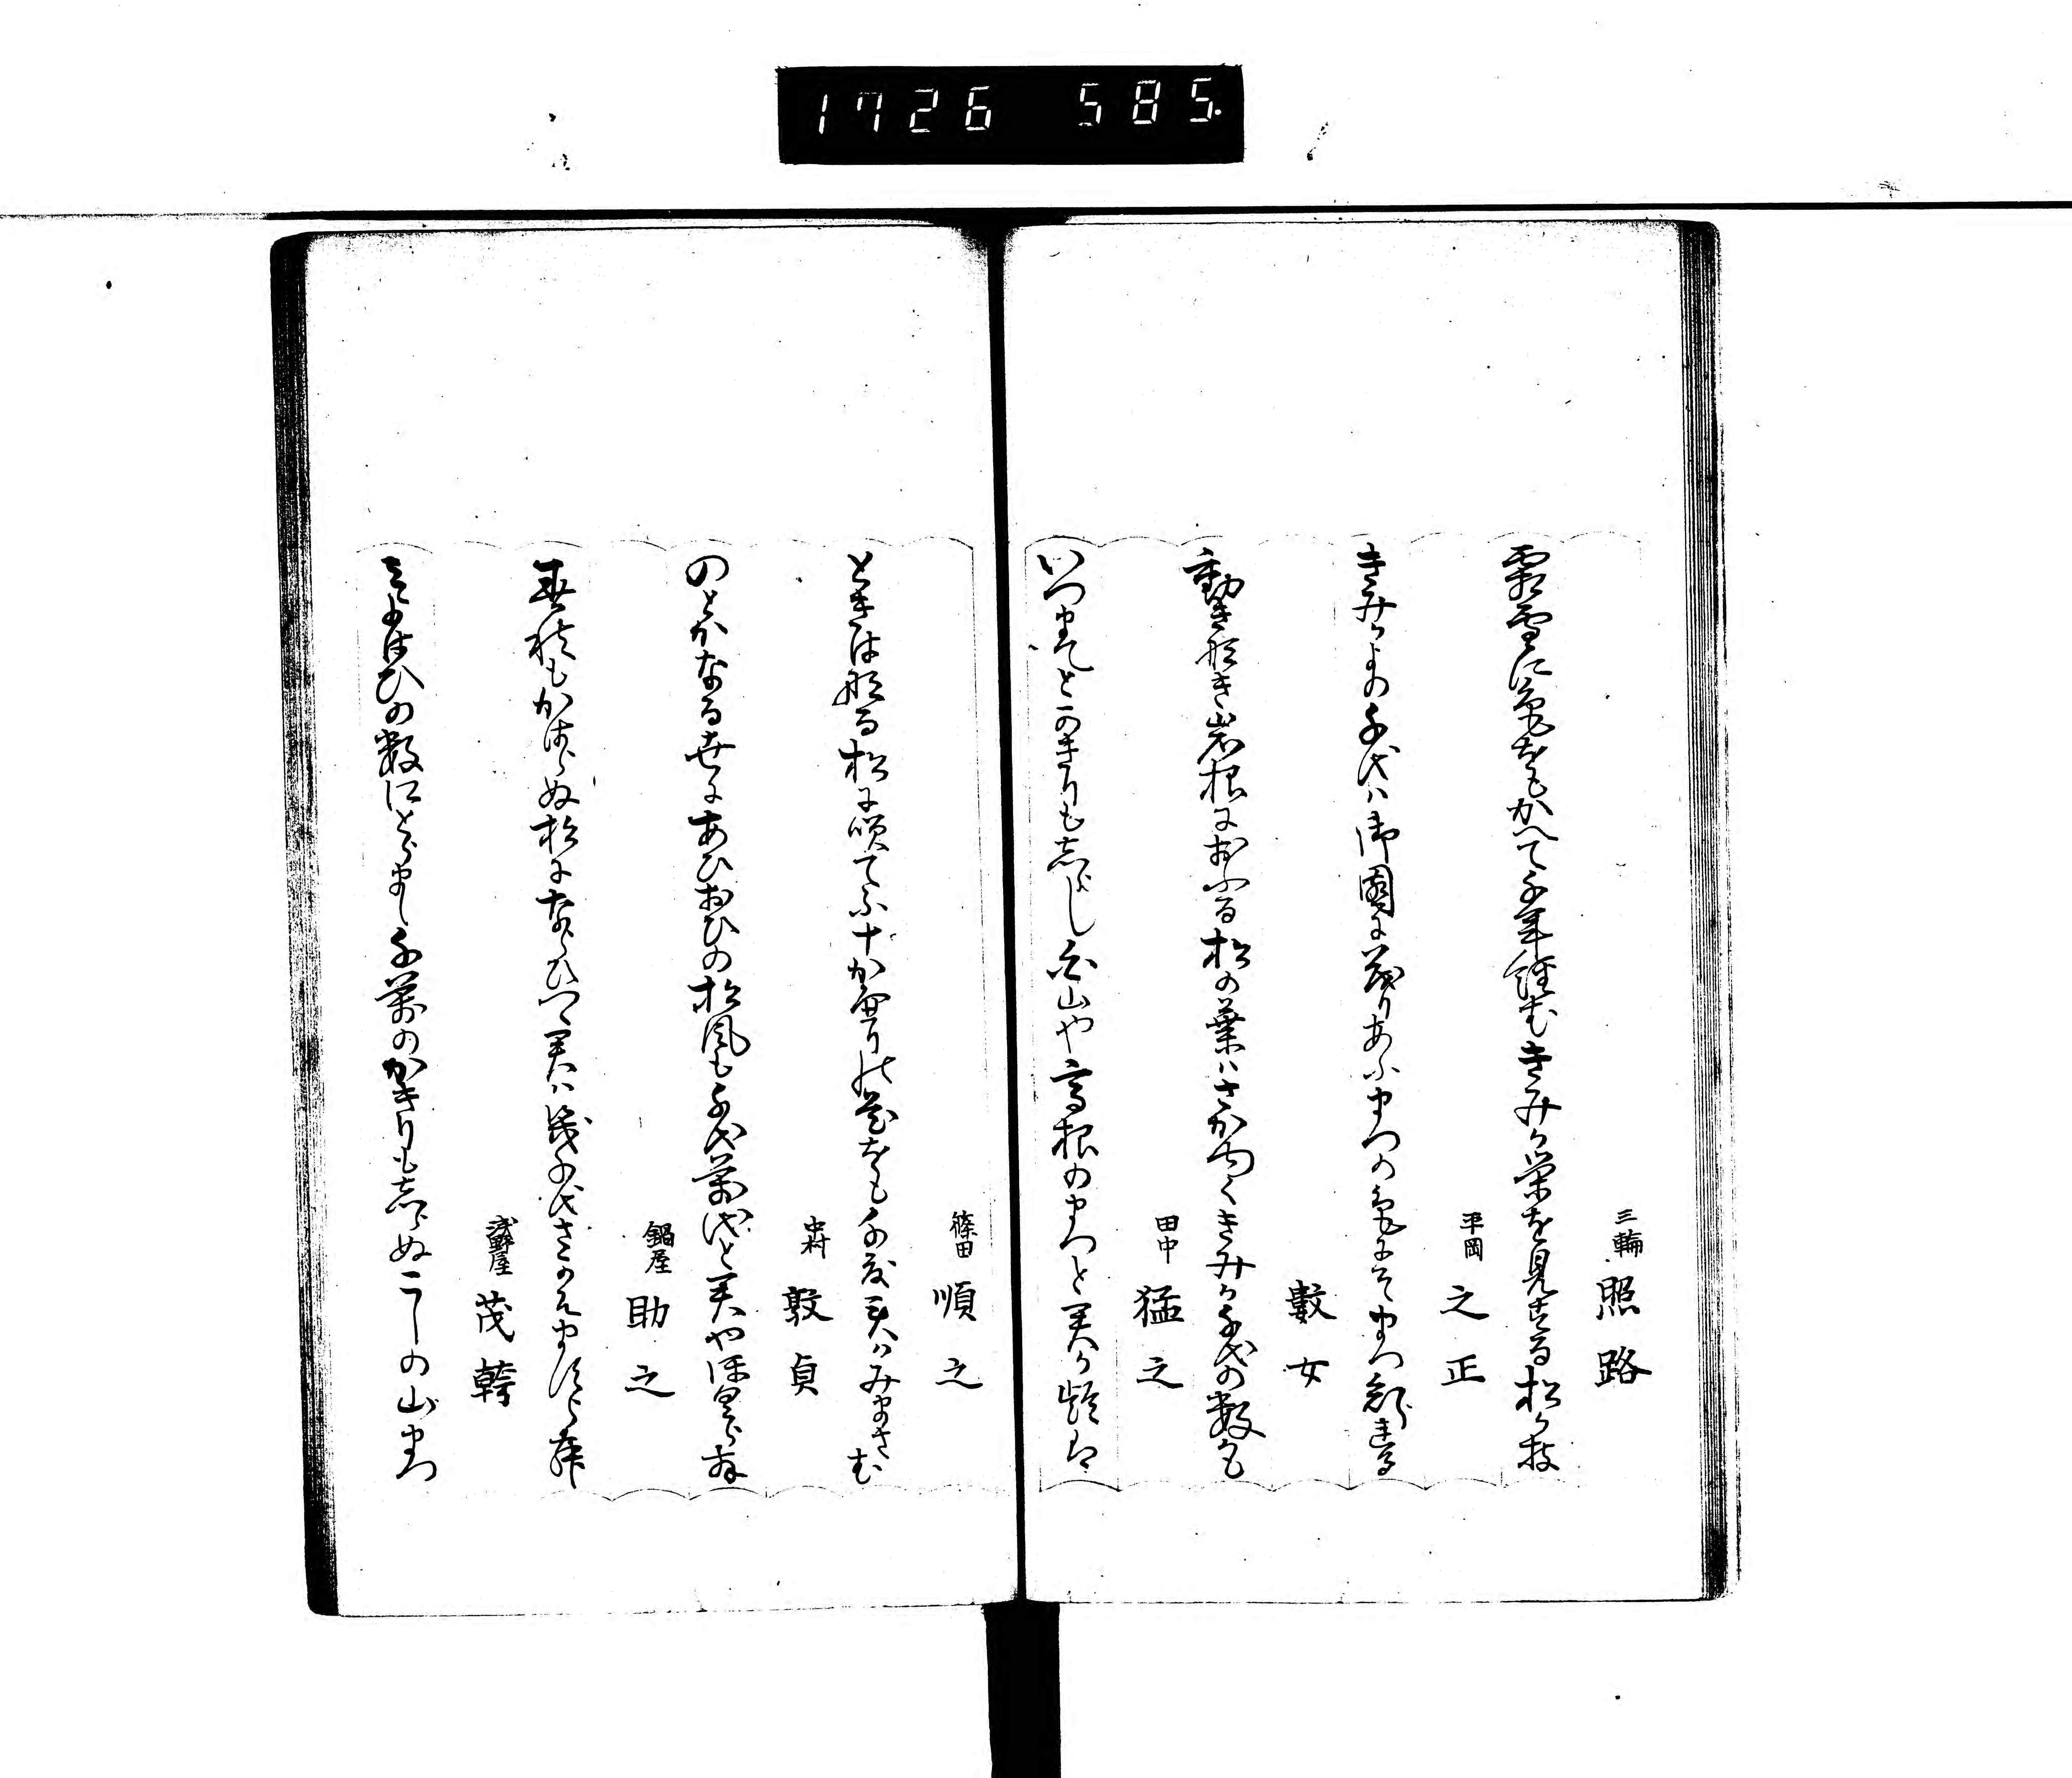 1726 585.
三輪 照路
霜雪に色をもかへて千年経むきみか栄を見する松か枝
平岡 之正
きみかよの千代ハ御園に茂りあふまつの色にそまつ
數女
動き那き岩根におふる松の葉ハさか由くきみか千代の数かも
田中 猛之
いつまてとかきりも志らし
山や高根のまつと君か齢は
篠田 順之
ときは那る松に咲てふ十かへりの花をも千度君ハみまさむ
中村 敦貞
のとかなる世にあひおひの松風も千代萬代と君やほくらむ
鍋屋 助之
幾秋もかはらぬ松にならひつゝ君ハ幾千代さかえますらむ
浅野屋 茂幹
みよはひの数にとらまし千萬のかきりも志らぬこしの山まつ